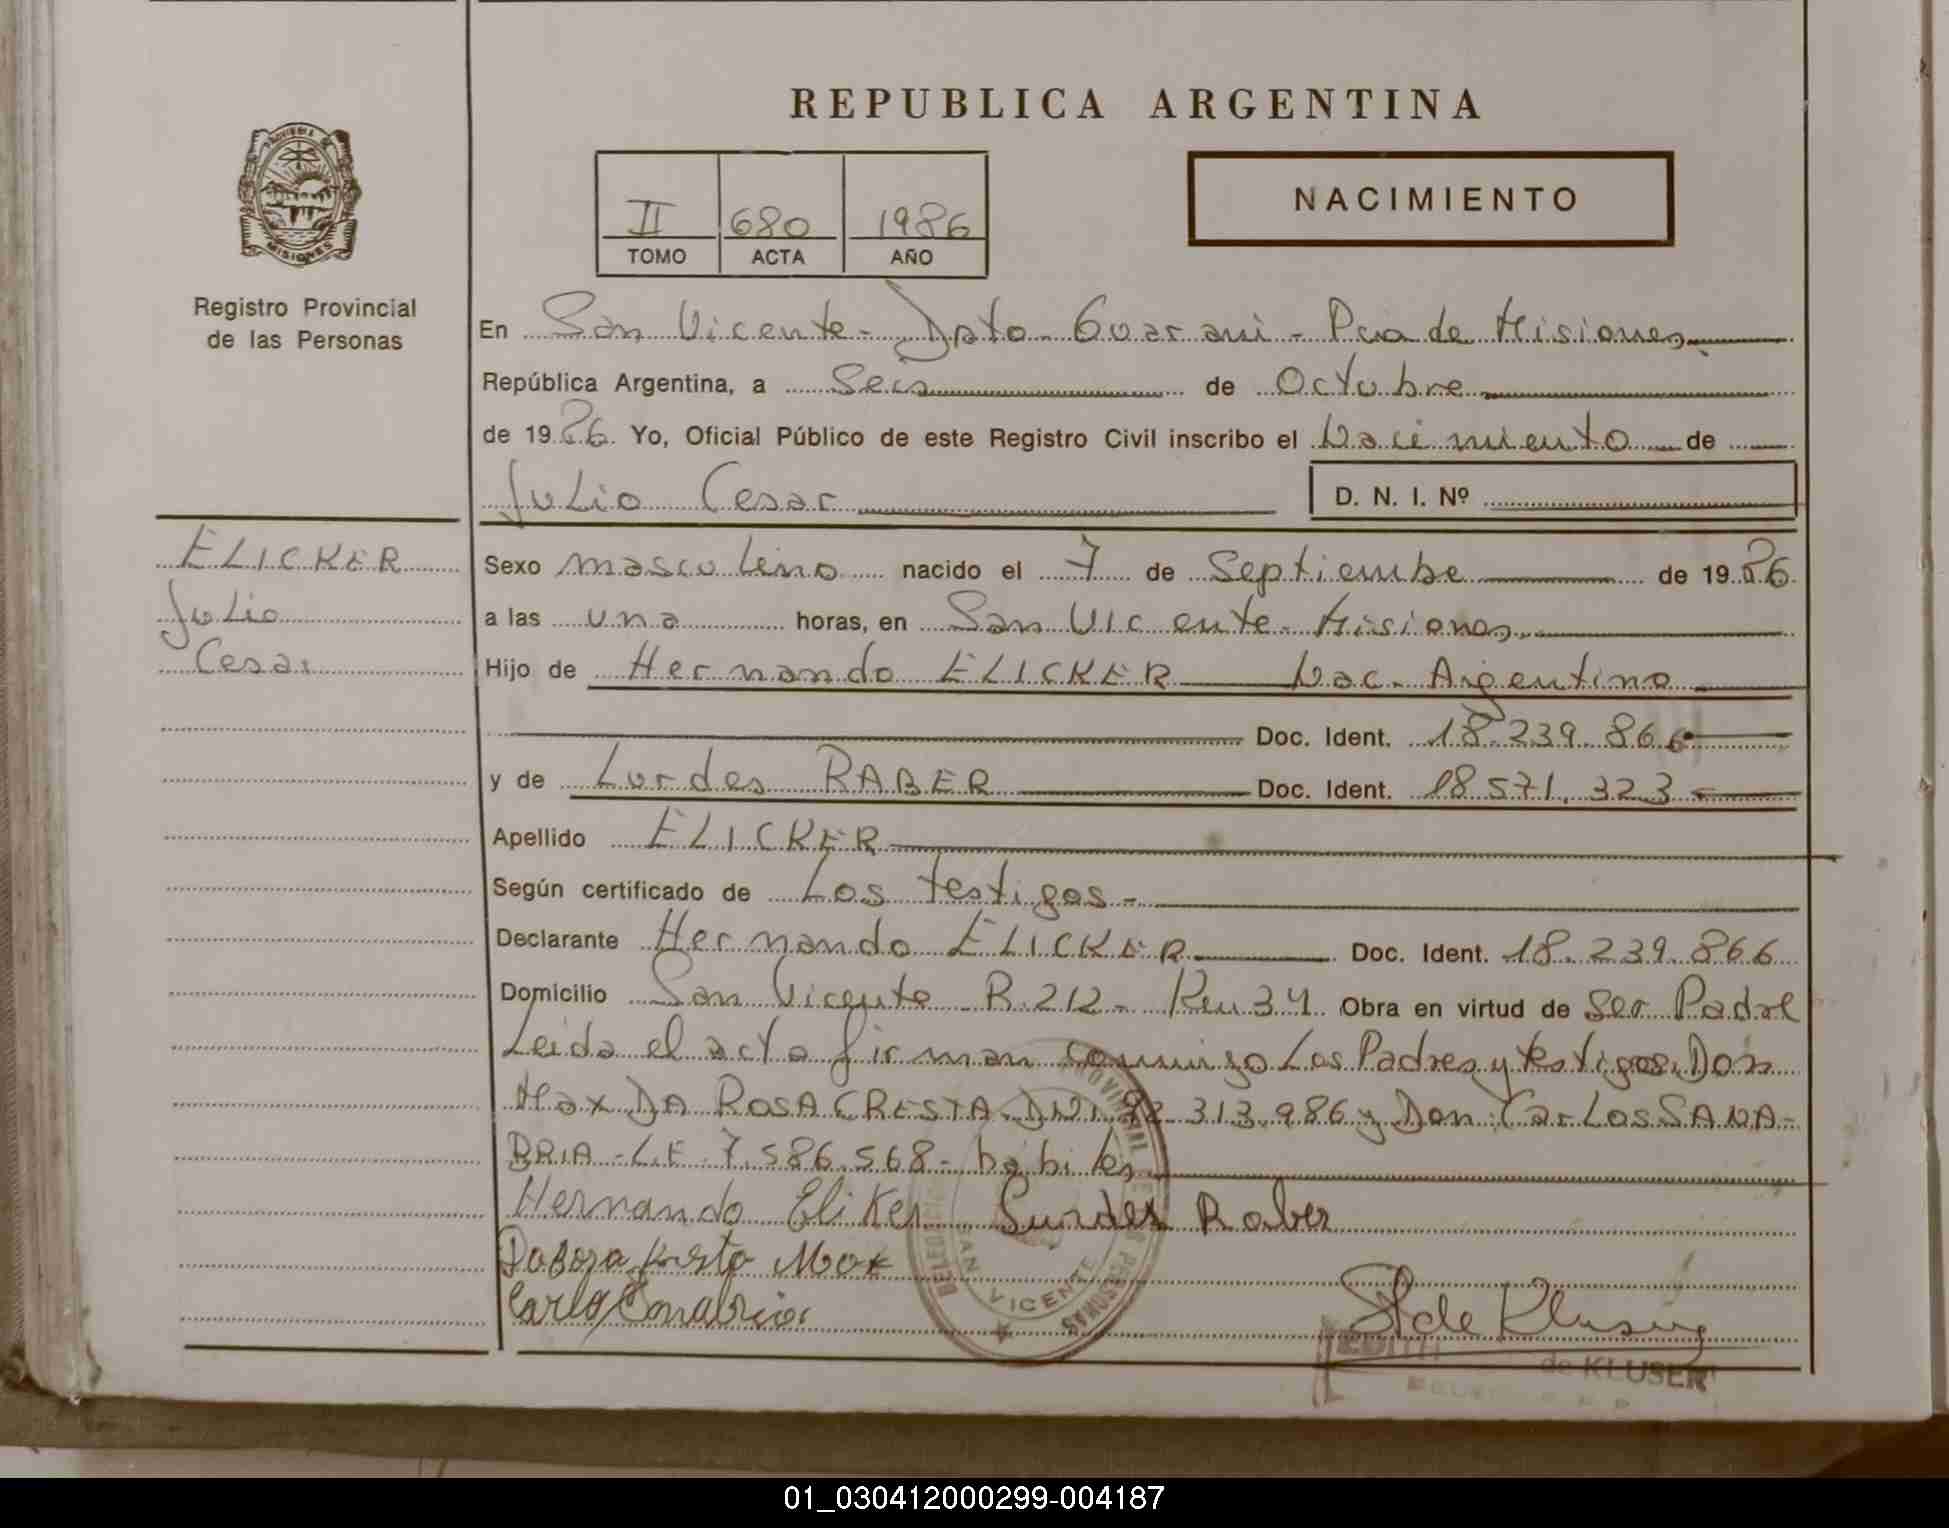 REPUBLICA ARGENTINA
PROVINCIA DE
MISIONES
Registro Provincial
de las Personas
II 680 1986
TOMO ACTA AÑO
NACIMIENTO
En San Vicente - Dpto Guarani - Pcia de Misiones
República Argentina, a Seis de Octubre
de 1986 Yo, Oficial Público de este Registro Civil inscribo el Nacimiento de
Julio Cesar D. N. I. Nº
ELICKER
Julio
Cesar
Sexo masculino nacido el 7 de Septiembe de 1986
a las una horas, en San Vicente - Misiones
Hijo de Hernando ELICKER Nac. Argentino
Doc. Ident. 18.239.866
y de Lurdes RABER Doc. Ident. 18.571.323
Apellido ELICKER
Según certificado de Los testigos -
Declarante Hernando ELICKER Doc. Ident. 18.239.866
Domicilio San Vicente R.212 - Km 34 Obra en virtud de Ser Padre
Leida el acta firman conmigo Los Padres y testigos Don
Max DA ROSA CRESTA DNI 92.313.986 y Don: Carlos SANA-
BRIA - L.E 7.586.568 - habiles
Hernando Eliker Lurdes Raber
Darosa kresta Max
Carlo Sanabria
SAN VICENTE
PROVINCIAL DE LAS PERSONAS
EDITH de KLUSER
01_030412000299-004187